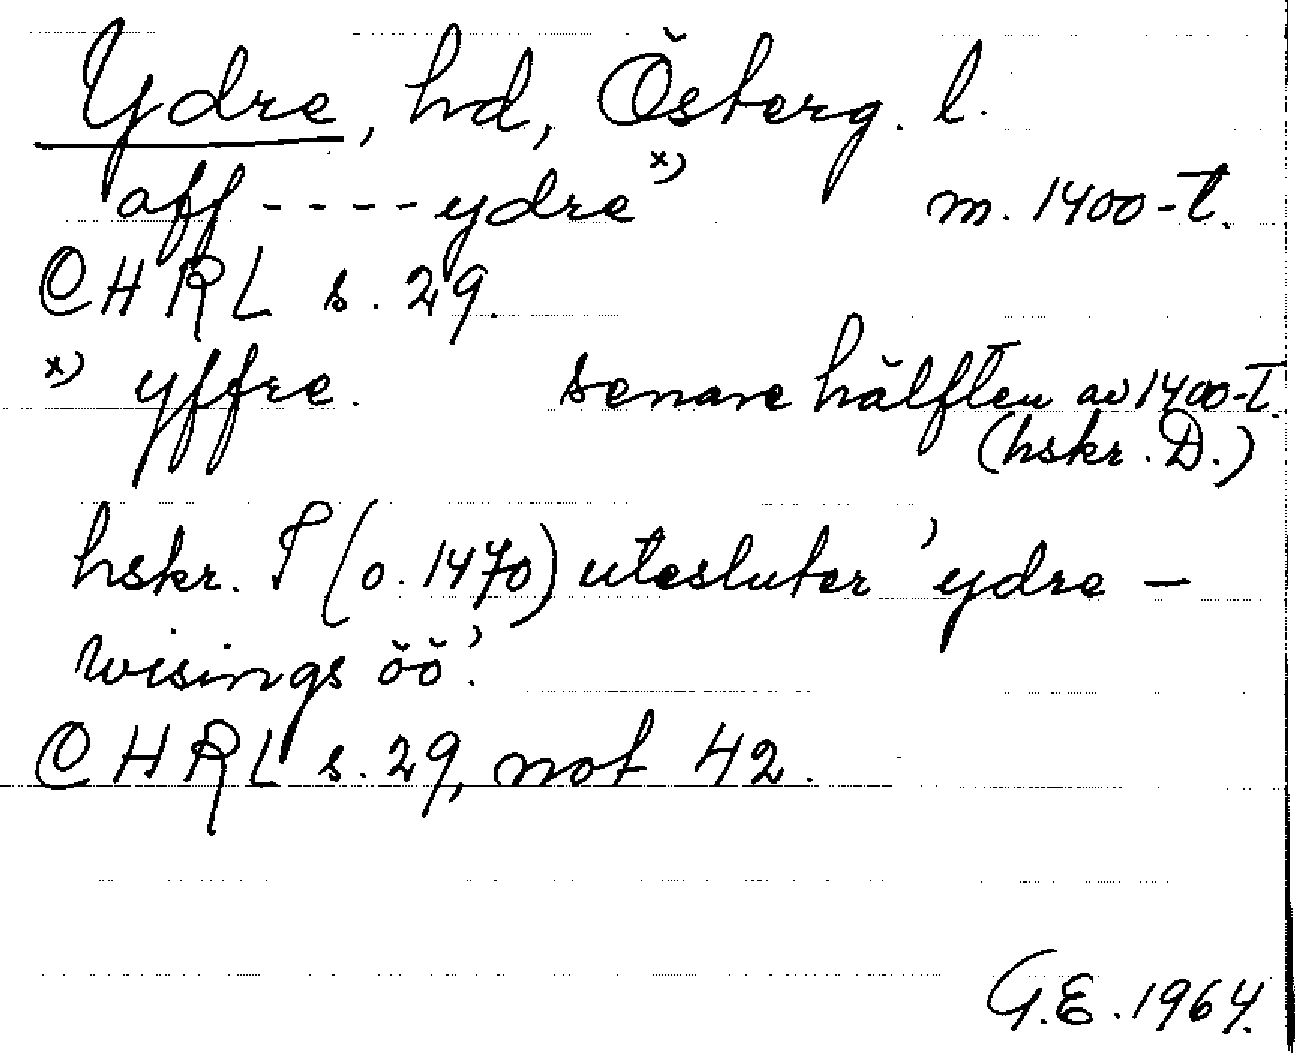 Ydre, hd, Österg. l.
aff - - - - ydre x) m. 1400-t.
CHRL s. 29.
x) yffre. senare hälften av 1400-t.
(hskr. D.)
hskr. T (o. 1470) utesluter 'ydre –
wisings öö'.
CHRL s. 29, not 42.
G.E. 1964.